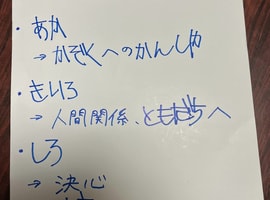 ・あか
→かぞくへのかんしゃ
・きいろ
→人間関係、ともだちへ
・しろ
→決心